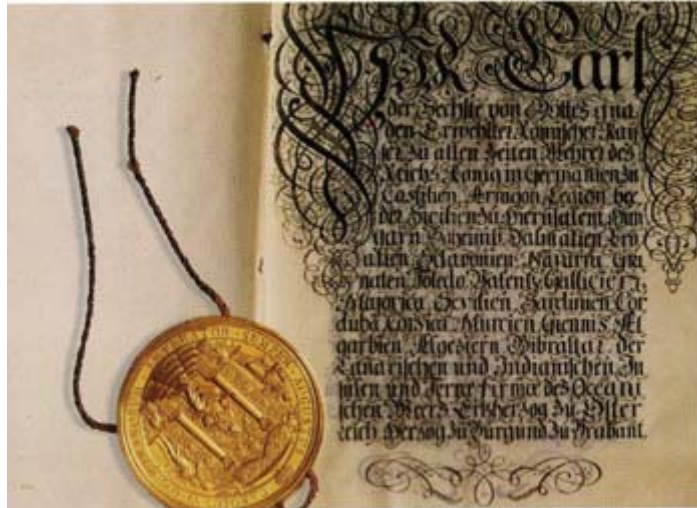 Wir Carl
der Sechste von Gottes gna
den Erwehlter Römischer Kay
ser zu allen Zeiten Mehrer des
Reichs, König in Germanien zu
Castilien, Arragon, Legion, bee
der Sicilien zu Hierusalem, Hun
garn, Boheimb, Dalmatien, Cro
atien, Sclavonien, Navarra, Gra
naten, Toledo, Valentz, Gallicien,
Majorica, Sevilien, Sardinien, Cor
duba, Corsica, Murcien, Giennis, Al
garbien, Algeziern, Gibraltar, der
Canarischen und Indianischen In
sulen und Terrae firmae des Oceani
schen Meers, Ertzherzog zu Öster
reich Herzog zu Burgund zu Brabant,
SEMPER